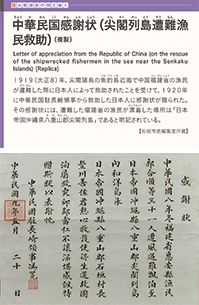 中華民国感謝状(尖閣列島遭難漁
民救助)(複製)
Letter of appreciation from the Republic of China (on the rescue
of the shipwrecked fishermen in the sea near the Senkaku
Islands) [Replica]
1919(大正8)年、尖閣諸島の魚釣島近海で中国福建省の漁民
が遭難した際に日本人によって救助されたことを受けて、1920年
に中華民国駐長崎領事から救助した日本人に感謝状が贈られた。
その感謝状には、遭難した福建省の漁民が漂着した場所は「日本
帝国沖縄県八重山郡尖閣列島」であると明記されている。
【石垣市史編集室所蔵】
感謝狀
中華民國八年冬福建省惠安縣漁民
郭合順等三十一人遭風遇難飄泊至
日本帝國沖繩縣八重山郡尖閣列島
內和洋島承
日本帝國沖繩縣八重山郡石垣村
中華民國駐長崎領事馮冕
中華民國九年五月二十日